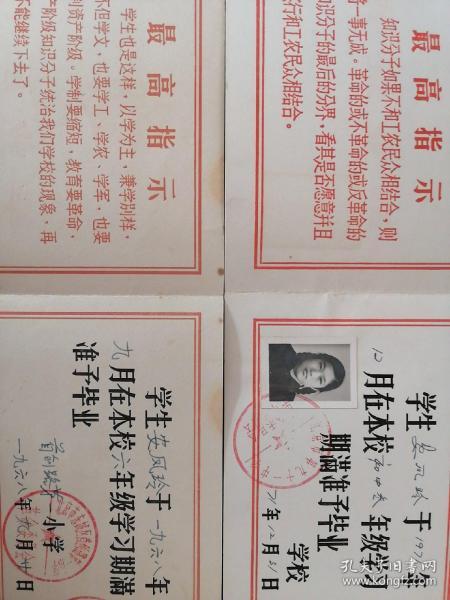 最高指示
学生也是这样，以学为主，兼学别样，
不但学文，也要学工、学农、学军，也要
判资产阶级。学制要缩短，教育要革命，
产阶级知识分子统治我们学校的现象，再
不能继续下去了。
最高指示
知识分子如果不和工农民众相结合，则
一事无成。革命的或不革命的或反革命的
知识分子的最后的分界，看其是否愿意并且
行和工农民众相结合。
学生安凤玲于一九六八年
九月在本校六年级学习期满
准予毕业
第一小学
一九六八年九月
学生安凤玲于197
12月在本校初中叁年级学习
期满准予毕业
学校
71年12月31日
孔夫子旧书网